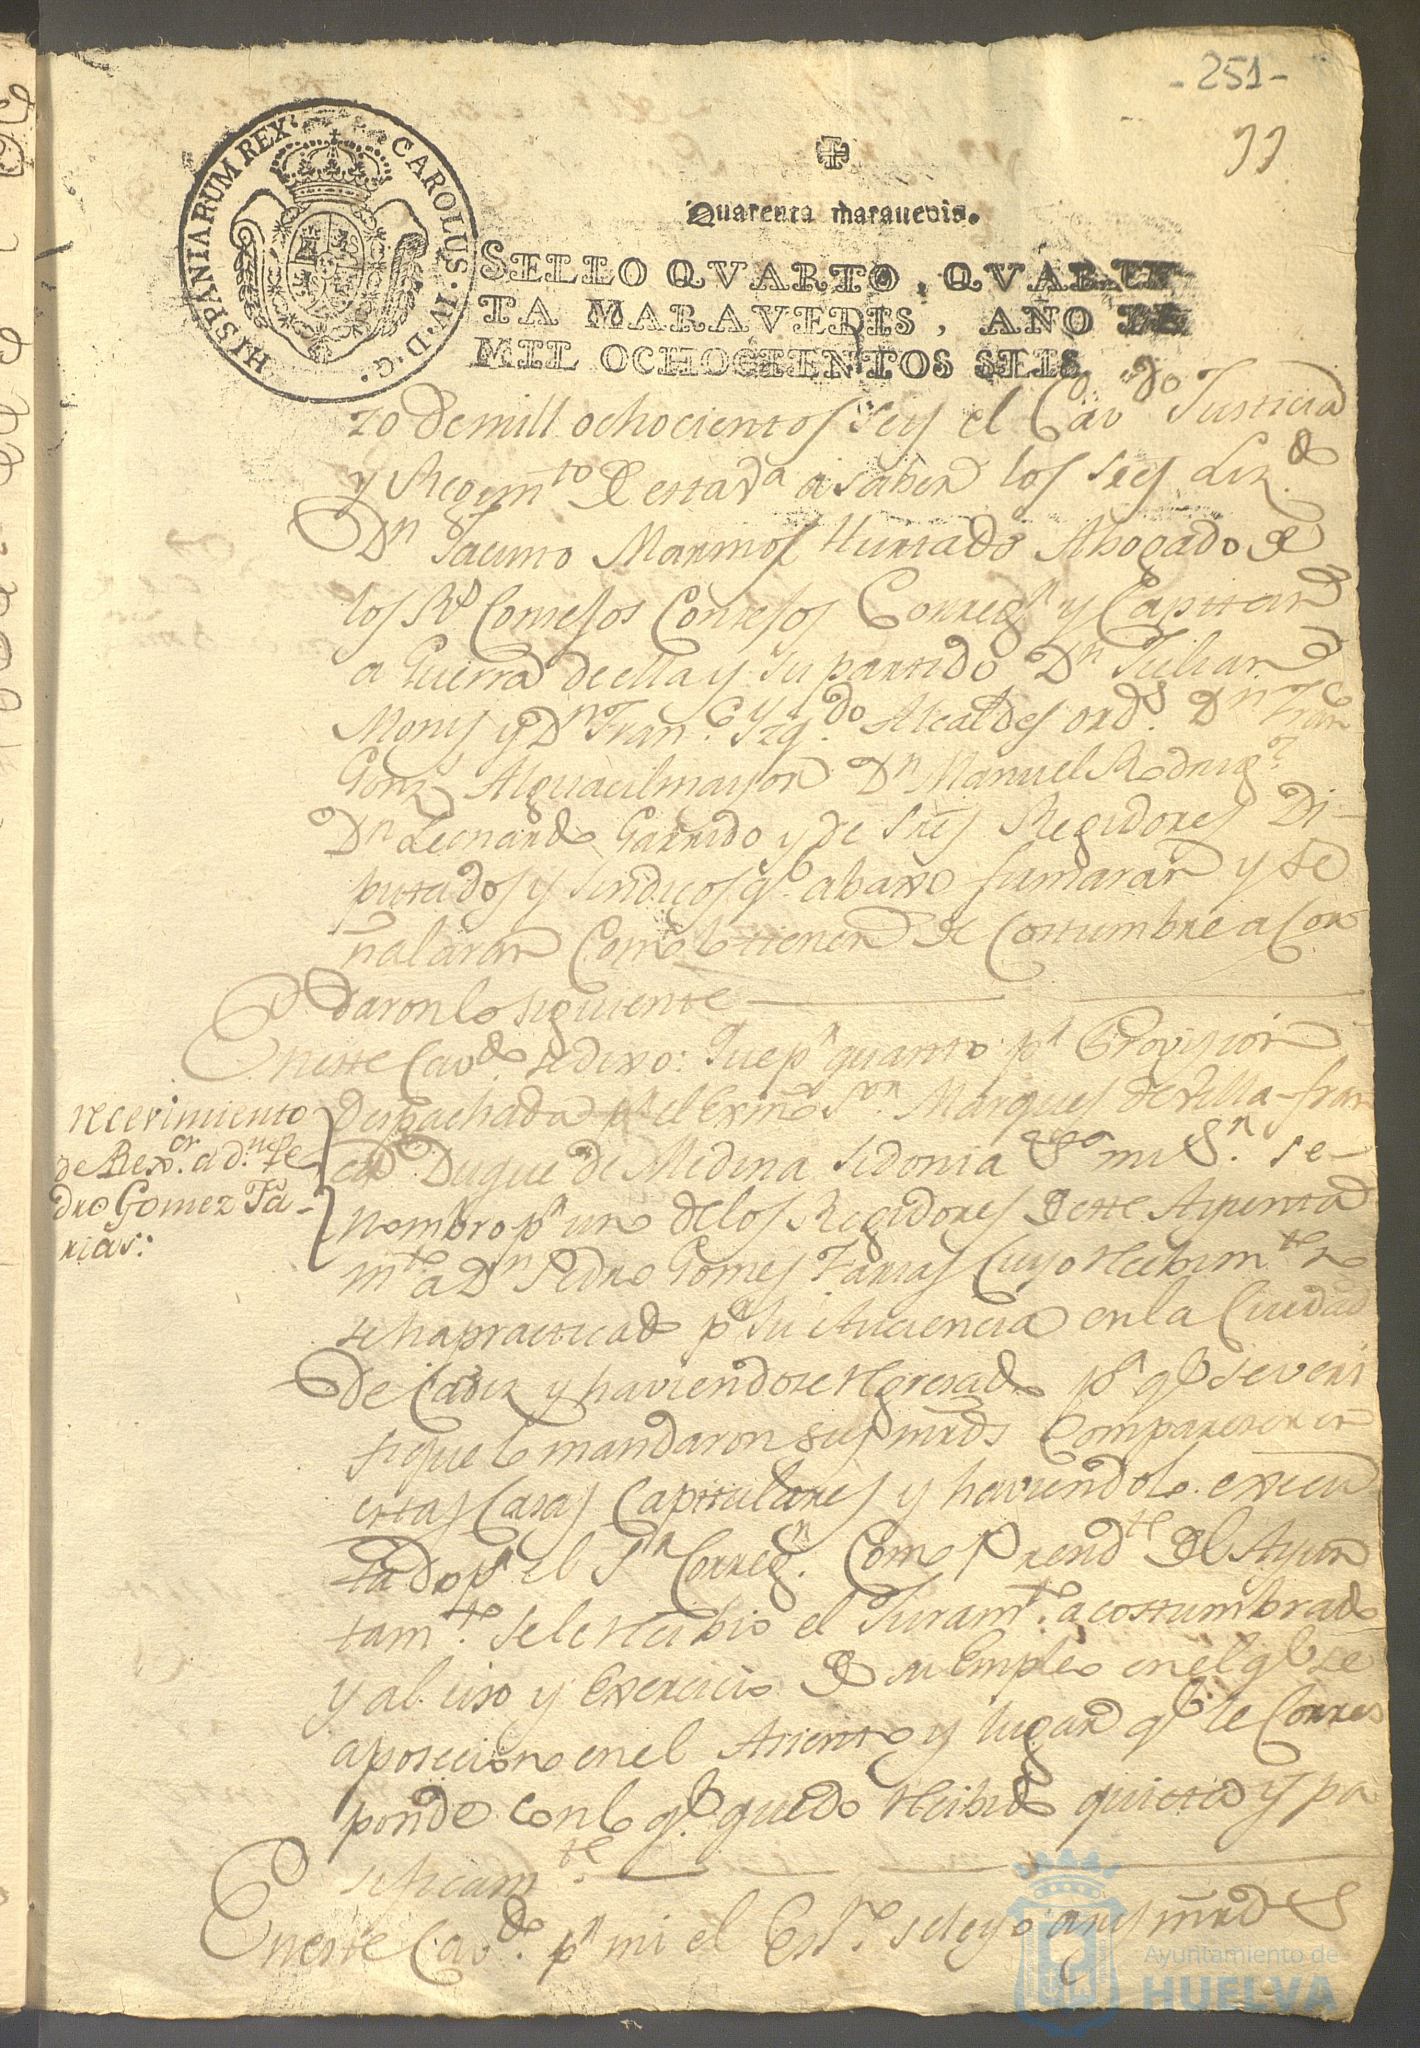 - 251 -
99
HISPANIARUM REX. CAROLUS. IV. D. G.
Quarenta maravedis.
SELLO QVARTO, QVAREN
TA MARAVEDIS, AÑO DE
MIL OCHOCIENTOS SEIS.
zo de mill ochocientos seis el Cavdo Justicia
y Regimto de esta va a saber los Sres Lizdo
Dn Jacinto Marmol Hurtado Abogado de
los Rs Consejos Consejos Corregr y Capitan
a Guerra de ella y su partido Dn Julian
Monis y Dn Franco Yzqdo Alcaldes ords Dn Fran
Gonz Alguacil mayor Dn Manuel Rodrigz
Dn Leonardo Garrido y de Sres Regidores Di-
putados y Sindicos qe abaxo firmaran y se
ñalaran como lo tienen de Costumbre acor
daron lo siguiente
En este Cavdo se dixo: Que pr quanto pr Provision
recevimiento
de Rexor a dn Pe
dro Gomez Fa-
rias:
despachada pr el Exmo Sor Marques de Villa-fran
ca Duque de Medina Sidonia mi Sr. se
nombro pr uno de los Regidores de este Ayunta
mto a Dn Pedro Gomes Farias Cuyo recibimto no
se ha practicado pr su Auciencia en la Ciudad
de Cadiz y haviendose regresado pa qe se veri
fique lo mandaron sus mrds Comparecer en
estas Casas Capitulares y haviendolo execu
tado pr el Sr Corregr Como Prendte del Ayun
tamto se le recibio el Juramto acostumbrado
y al uso y Exercicio de su Empleo en el qe se
aposeciono en el Asiento y lugar qe le Corres
ponde con lo qe quedo recibido quieta y pa
sificamte
En este Cavdo pr mi el Essno se leyo a sus mrds
Ayuntamiento de
HUELVA